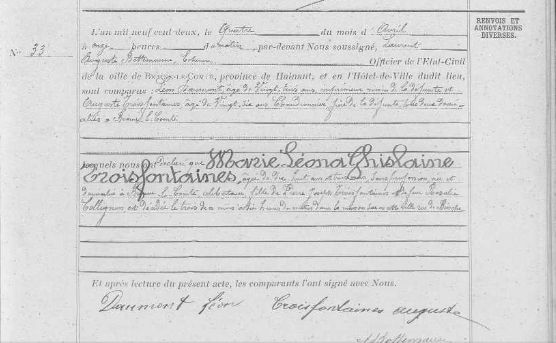 RENVOIS ET
ANNOTATIONS
DIVERSES.
No 33
L'an mil neuf cent deux, le Quatre du mois d'Avril
à onze heures du matin, par-devant Nous soussigné, Laurent
Auguste Officier de l'Etat-Civil
de la ville de Braine-le-Comte, province de Hainaut, et en l'Hôtel-de-Ville dudit lieu,
sont comparus : Léon Daumont, âgé de Vingt trois ans, voisin de la défunte et
Auguste Troisfontaines âgé de Vingt six ans Cordonnier frère de la défunte, tous deux domi-
ciliés à Braine-le-Comte
lesquels nous ont déclaré que Marie Léona Ghislaine
Troisfontaines, âgée de dix huit ans et sans profession, née et
domiciliée à Braine-le-Comte, célibataire, fille de Pierre Joseph Troisfontaines et de feu Rosalie
Collignon est décédée le trois de ce mois à heures du dans la maison sise en cette ville rue de
Et après lecture du présent acte, les comparants l'ont signé avec Nous.
Daumont Léon Troisfontaines auguste